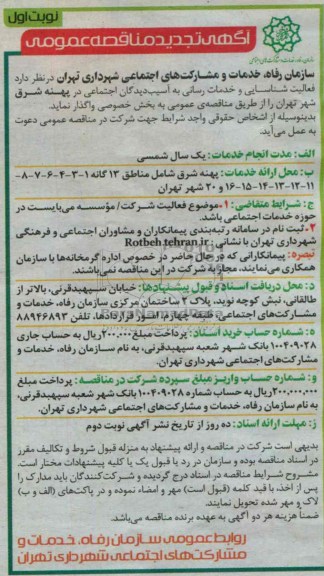 نوبت اول
آگهی تجدید مناقصه عمومی
سازمان رفاه، خدمات و مشارکت‌های اجتماعی شهرداری تهران در نظر دارد
فعالیت شناسایی و خدمات رسانی به آسیب‌دیدگان اجتماعی در پهنه شرق
شهر تهران را از طریق مناقصه‌ی عمومی به بخش خصوصی واگذار نماید.
بدینوسیله از اشخاص حقوقی واجد شرایط جهت شرکت در مناقصه عمومی دعوت
به عمل می‌آید.
الف: مدت انجام خدمات: یک سال شمسی
ب: محل ارائه خدمات: پهنه شرق شامل مناطق ۱۳ گانه ۱-۳-۴-۶-۷-۸-
۱۱-۱۲-۱۳-۱۴-۱۵-۱۶ و ۲۰ شهر تهران
ج: شرایط متقاضی: ۱.موضوع فعالیت شرکت/ مؤسسه می‌بایست در
حوزه خدمات اجتماعی باشد.
۲.ثبت نام در سامانه رتبه‌بندی پیمانکاران و مشاوران اجتماعی و فرهنگی
شهرداری تهران با نشانی Rotbeh.tehran.ir
تبصره: پیمانکارانی که در حال حاضر در خصوص اداره گرمخانه‌ها با سازمان
همکاری می‌نمایند، مجاز به شرکت در این مناقصه نمی‌باشند.
د: محل دریافت اسناد و قبول پیشنهادها: خیابان سپهبدقرنی، بالاتر از
طالقانی، نبش کوچه نوید، پلاک ۲ ساختمان مرکزی سازمان رفاه، خدمات و
مشارکت‌های اجتماعی، طبقه چهارم، امور قراردادها، تلفن ۸۸۹۴۶۸۹۳
ه: شماره حساب خرید اسناد: پرداخت مبلغ ۲۰۰.۰۰۰ریال به حساب جاری
۱۰۰۴۰۹۰۲۸ بانک شهر شعبه سپهبدقرنی، به نام سازمان رفاه، خدمات و
مشارکت‌های اجتماعی شهرداری تهران.
و: شماره حساب واریز مبلغ سپرده شرکت در مناقصه: پرداخت مبلغ
۲۰۰.۰۰۰.۰۰۰ریال به حساب شماره ۱۰۰۴۰۹۰۲۸ بانک شهر شعبه سپهبدقرنی،
به نام سازمان رفاه، خدمات و مشارکت‌های اجتماعی شهرداری تهران.
ز: مهلت ارائه اسناد: ده روز از تاریخ نشر آگهی نوبت دوم
بدیهی است شرکت در مناقصه و ارائه پیشنهاد به منزله قبول شروط و تکالیف مقرر
در اسناد مناقصه بوده و سازمان در رد یا قبول یک یا کلیه پیشنهادات مختار است.
مشروح شرایط مناقصه در اسناد درج گردیده و شرکت‌کنندگان باید مدارک را
پس از اخذ، با قید کلمه (قبول است) مهر و امضاء نموده و در پاکت‌های (الف و ب)
لاک و مهر شده تحویل نمایند.
ضمناً هزینه هر دو آگهی به عهده برنده مناقصه می‌باشد.
روابط عمومی سازمان رفاه، خدمات و
مشارکت‌های اجتماعی شهرداری تهران